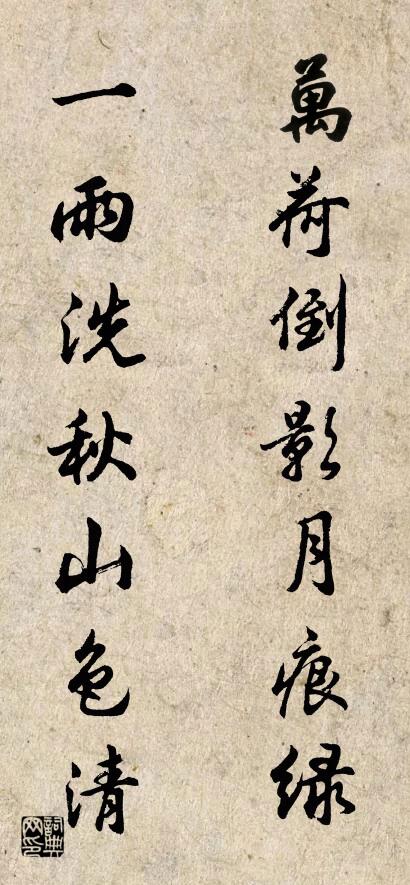 萬荷倒影月痕绿
一雨洗秋山色清
詞典网印